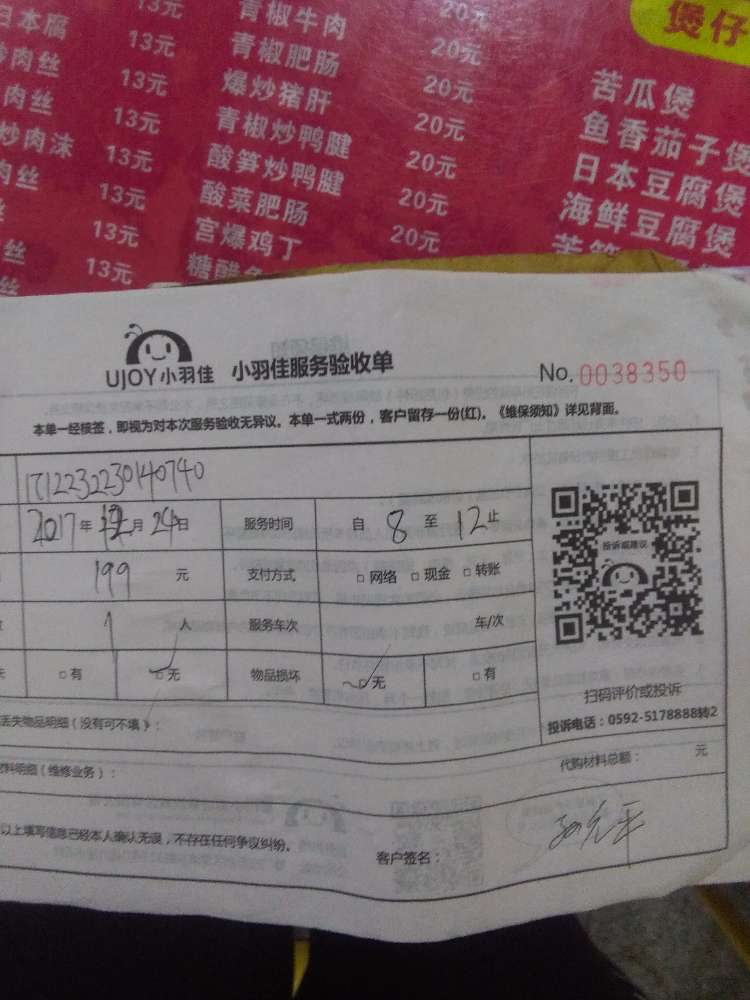 日本腐
13元
青椒牛肉
20元
煲仔
肉丝
13元
青椒肥肠
20元
苦瓜煲
肉丝
13元
爆炒猪肝
20元
鱼香茄子煲
炒肉沫
13元
青椒炒鸭腱
20元
日本豆腐煲
肉丝
13元
酸笋炒鸭腱
20元
海鲜豆腐煲
13元
酸菜肥肠
20元
丝
13元
宫爆鸡丁
20元
丝
13元
糖醋
UJOY小羽佳 小羽佳服务验收单
No.0038350
本单一经核签，即视为对本次服务验收无异议。本单一式两份，客户留存一份(红)。《维保须知》详见背面。
2017年 月24日 服务时间 自8至12止
199 元 支付方式 □网络 □现金 □转账
1 人 服务车次 车/次
□有 □无 物品损坏 □无 □有
投诉或建议
扫码评价或投诉
投诉电话：0592-5178888转2
丢失物品明细（没有可不填）：
料明细（维修业务）：
代购材料总额： 元
以上填写信息已经本人确认无误，不存在任何争议纠纷。
客户签名：